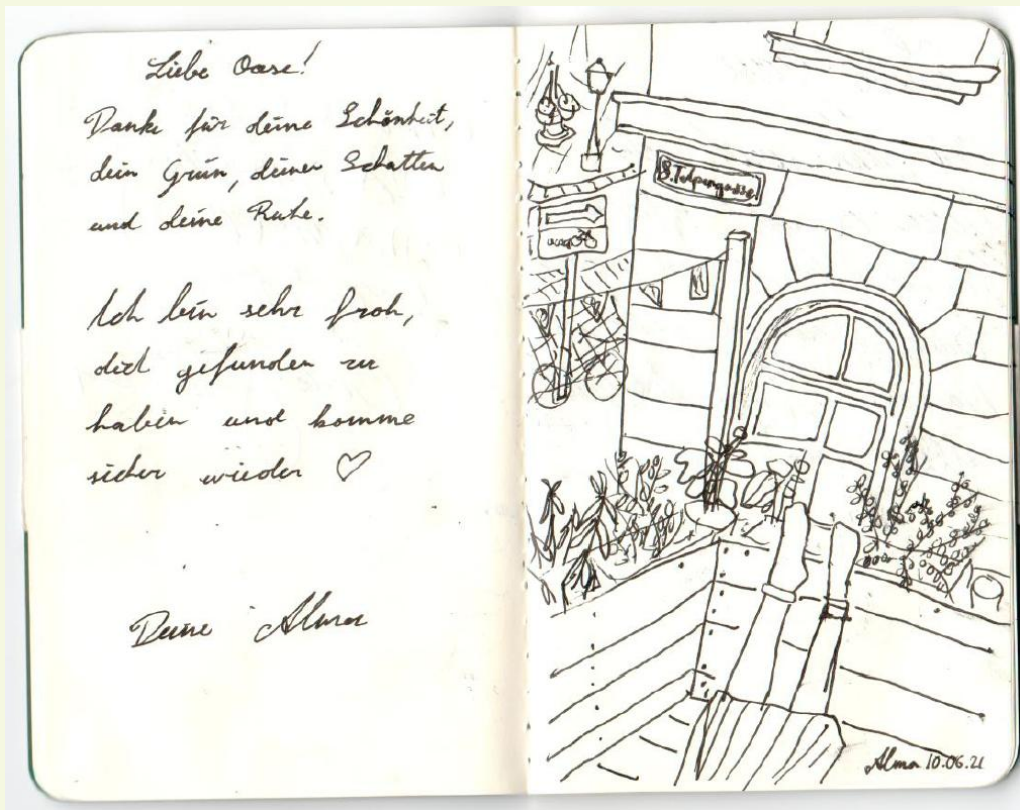 Liebe Oase!
Danke für deine Schönheit,
dein Grün, deinen Schatten
und deine Ruhe.
Ich bin sehr froh,
dich gefunden zu
haben und komme
sicher wieder ♡
Deine Alma
8. Tulpengasse
Alma 10.06.21